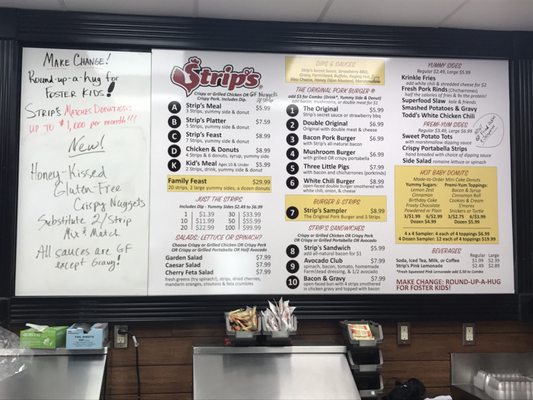 MAKE CHANGE!
Round-up-a-hug for
FOSTER KIDS!
STRIPS MATCHES DONATIONS
UP TO $1,000 per month!!!
New!
Honey-Kissed
Gluten Free
Crispy Nuggets
Substitute 2/Strip
Mix & Match
All sauces are GF
except Gravy!
Strip's
A Strip's Meal $5.99
3 strips, yummy side & donut
B Strip's Platter $7.99
5 strips, yummy side & donut
C Strip's Feast $8.99
7 strips, yummy side & donut
D Chicken & Donuts $8.99
K Kid's Meal Ages 10 & Under $5.99
2 strips, drink, yummy side & donut
Family Feast $29.99
20 strips, 2 large yummy sides, a dozen donuts
JUST THE STRIPS
Includes Dip - Yummy Sides $2.49 to $6.99
1 $1.39 30 $33.99
10 $11.99 50 $55.99
20 $22.99 100 $99.99
SALADS: LETTUCE OR SPINACH?
Choose Crispy or Grilled Chicken OR Crispy Pork
OR Crispy or Grilled Portabella OR Avocado
Garden Salad $7.99
Caesar Salad $7.99
Cherry Feta Salad $7.99
DIPS & SAUCES
THE ORIGINAL PORK BURGER
1 The Original
Strip's secret sauce or strawberry bbq
2 Double Original
Original with double meat & cheese
3 Bacon Pork Burger
with Strip's all-natural bacon
4 Mushroom Burger
with grilled OR crispy portabella
5 Three Little Pigs
with bacon & chicharrones (porkrinds)
6 White Chili Burger $8.99
open-faced double burger smothered
with white chili, onion, & cheese
BURGER & STRIPS
7 Strip's Sampler $8.99
The Original Pork Burger and 3 Strips
STRIP'S SANDWICHES
Crispy or Grilled Chicken OR Crispy Pork
OR Crispy or Grilled Portabella OR Avocado
8 Strip's Sandwich $5.99
add all-natural bacon for $1
9 Avocado Club $7.99
spinach, bacon, tomato, homemade
Farmstead dressing, & 1/2 avocado
10 Bacon & Gravy $7.99
open-faced bun with 4 strips smothered
in chicken gravy and topped with bacon
YUMMY SIDES
Regular $2.49, Large $5.99
Krinkle Fries
add white chili & shredded cheese for $2
Fresh Pork Rinds (Chicharrones)
half the calories of fries & 0x the protein!
Superfood Slaw kale & friends
Smashed Potatoes & Gravy
Todd's White Chicken Chili
PREMI-YUM SIDES
Regular $3.49, Large $6.99
Sweet Potato Tots
with marshmallow dipping sauce
Crispy Portabella Strips
hand breaded with choice of dipping sauce
Side Salad romaine lettuce or spinach
HOT BABY DONUTS
Made-to-Order Mini Cake Donuts
Yummy Sugars: Premi-Yum Toppings:
Lemon Zest Bacon & Syrup
Cinnamon Cinnamon Roll
Birthday Cake Cookies & Cream
Frosty Chocolate S'mores
Powdered or Plain Snickers or Turtle
6/$1.99 6/$2.75
12/$2.99 12/$3.99
Dozen $4.99 Dozen $5.99
4 x 4 Sampler: 4 each of 4 toppings $6.99
4 Dozen Sampler: 12 each of 4 toppings $19.99
BEVERAGES
Regular Large
Soda, Iced Tea, Milk, or Coffee $1.99 $2.39
Strip's Pink Lemonade $2.49 $2.89
MAKE CHANGE: ROUND-UP-A-HUG
FOR FOSTER KIDS!